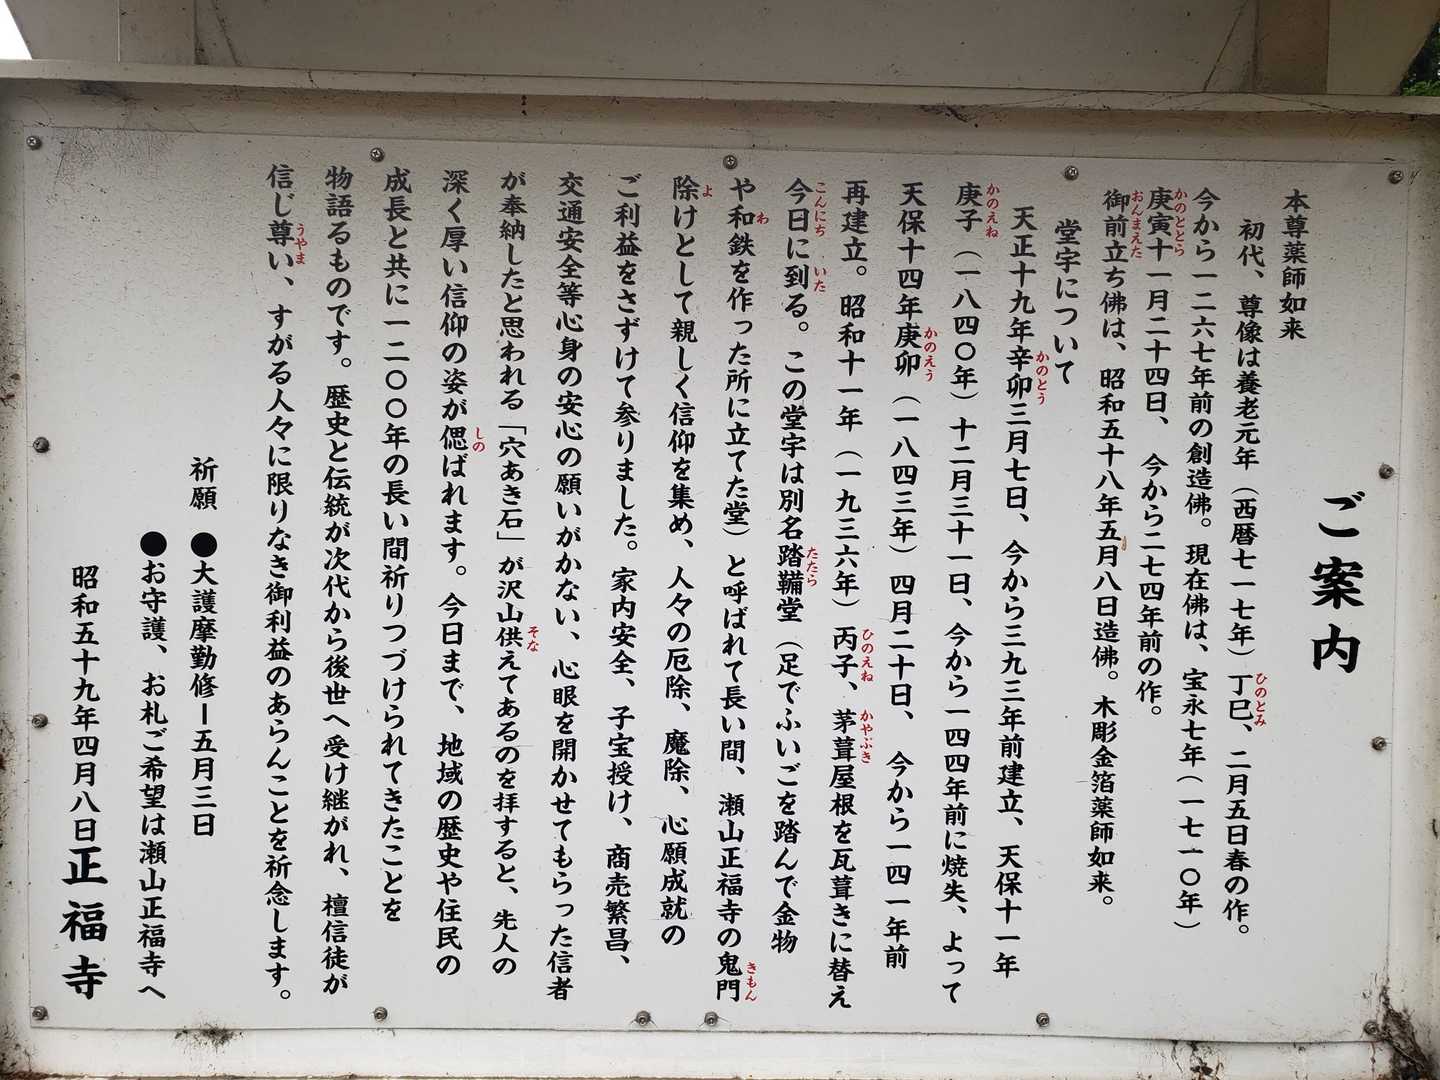 ご案内
本尊薬師如来
初代、尊像は養老元年（西暦七一七年）丁巳、二月五日春の作。
今から一二六七年前の創造佛。現在佛は、宝永七年（一七一〇年）
庚寅十一月二十四日、今から二七四年前の作。
御前立ち佛は、昭和五十八年五月八日造佛。木彫金箔薬師如来。
堂宇について
天正十九年辛卯三月七日、今から三九三年前建立、天保十一年
庚子（一八四〇年）十二月三十一日、今から一四四年前に焼失、よって
天保十四年庚卯（一八四三年）四月二十日、今から一四一年前
再建立。昭和十一年（一九三六年）丙子、茅葺屋根を瓦葺きに替え
今日に到る。この堂宇は別名踏鞴堂（足でふいごを踏んで金物
や和鉄を作った所に立てた堂）と呼ばれて長い間、瀬山正福寺の鬼門
除けとして親しく信仰を集め、人々の厄除、魔除、心願成就の
ご利益をさずけて参りました。家内安全、子宝授け、商売繁昌、
交通安全等心身の安心の願いがかない、心眼を開かせてもらった信者
が奉納したと思われる「穴あき石」が沢山供えてあるのを拝すると、先人の
深く厚い信仰の姿が偲ばれます。今日まで、地域の歴史や住民の
成長と共に一二〇〇年の長い間祈りつづけられてきたことを
物語るものです。歴史と伝統が次代から後世へ受け継がれ、檀信徒が
信じ尊い、すがる人々に限りなき御利益のあらんことを祈念します。
祈願 ●大護摩勤修ー五月三日
●お守護、お札ご希望は瀬山正福寺へ
昭和五十九年四月八日正福寺